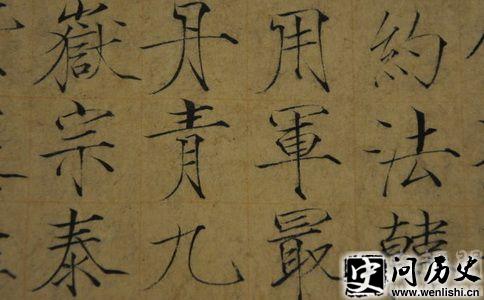 約法韓
用軍最
丹青九
嶽宗泰
史问历史
www.wenlishi.cn